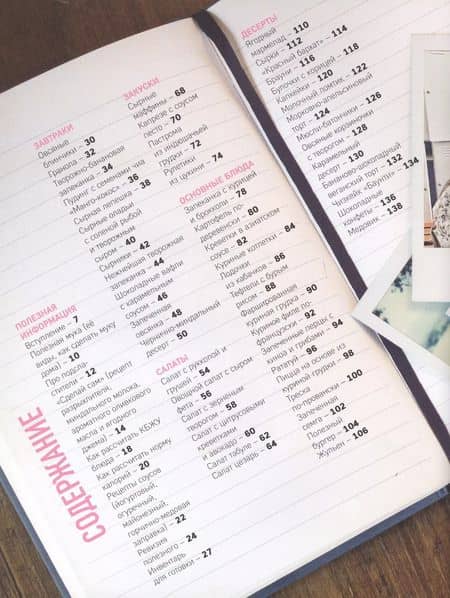 СОДЕРЖАНИЕ
ПОЛЕЗНАЯ
ИНФОРМАЦИЯ
Вступление – 7
Полезная мука (её
виды, как сделать муку
дома) – 10
Про подсла-
стители – 12
«Сделай сам» (рецепт
разрыхлителя,
миндального молока,
ароматного оливкового
масла и ягодного
джема) – 14
Как рассчитать КБЖУ
блюда – 18
Как рассчитать норму
калорий – 20
Рецепты соусов
(йогуртовый,
огуречный,
майонезный,
горчично-медовая
заправка) – 22
Ревизия
полезного – 24
Инвентарь
для готовки – 27
ЗАВТРАКИ
Овсяные
блинчики – 30
Гранола – 32
Творожно-банановая
запеканка – 34
Пудинг с семенами чиа
«Манго-кокос» – 36
Сырная лепешка – 38
Сырные оладьи
с соленой рыбой
и творожным
сыром – 40
Сырники – 42
Нежнейшая творожная
запеканка – 44
Шоколадные вафли
с карамельным
соусом – 46
Запеченная
овсянка – 48
Чернично-миндальный
десерт – 50
САЛАТЫ
Салат с рукколой и
грушей – 54
Овощной салат с сыром
фета – 56
Салат с зерненым
творогом – 58
Салат с цитрусовыми
креветками
и авокадо – 60
Салат табуле – 62
Салат цезарь – 64
ЗАКУСКИ
Сырные
маффины – 68
Капрезе с соусом
песто – 70
Пастрома
из индюшачьей
грудки – 72
Рулетики
из цукини – 74
ОСНОВНЫЕ БЛЮДА
Запеканка с курицей
и брокколи – 78
Картофель по-
деревенски – 80
Креветки в азиатском
соусе – 82
Куриные котлетки – 84
Лодочки
из кабачков – 86
Тефтели с бурым
рисом – 88
Фаршированная
куриная грудка – 90
Куриное филе по-
французски – 92
Запеченные перцы с
киноа и грибами – 94
Рататуй – 96
Пицца на основе из
куриной грудки – 98
Треска
по-провански – 100
Запеченная
семга – 102
Полезный
бургер – 104
Жульен – 106
ДЕСЕРТЫ
Ягодный
мармелад – 110
Сырки – 112
«Красный бархат» – 114
Брауни – 116
Булочки с корицей – 118
Капкейки – 120
Молочный ломтик – 122
Морковно-апельсиновый
торт – 124
Мюсли-батончики – 126
Овсяные корзиночки
с творогом – 128
Карамельный
десерт – 130
Бананово-шоколадный
веганский торт – 132
Чизкейк «Баунти» – 134
Шоколадные
конфеты – 136
Медовик – 138